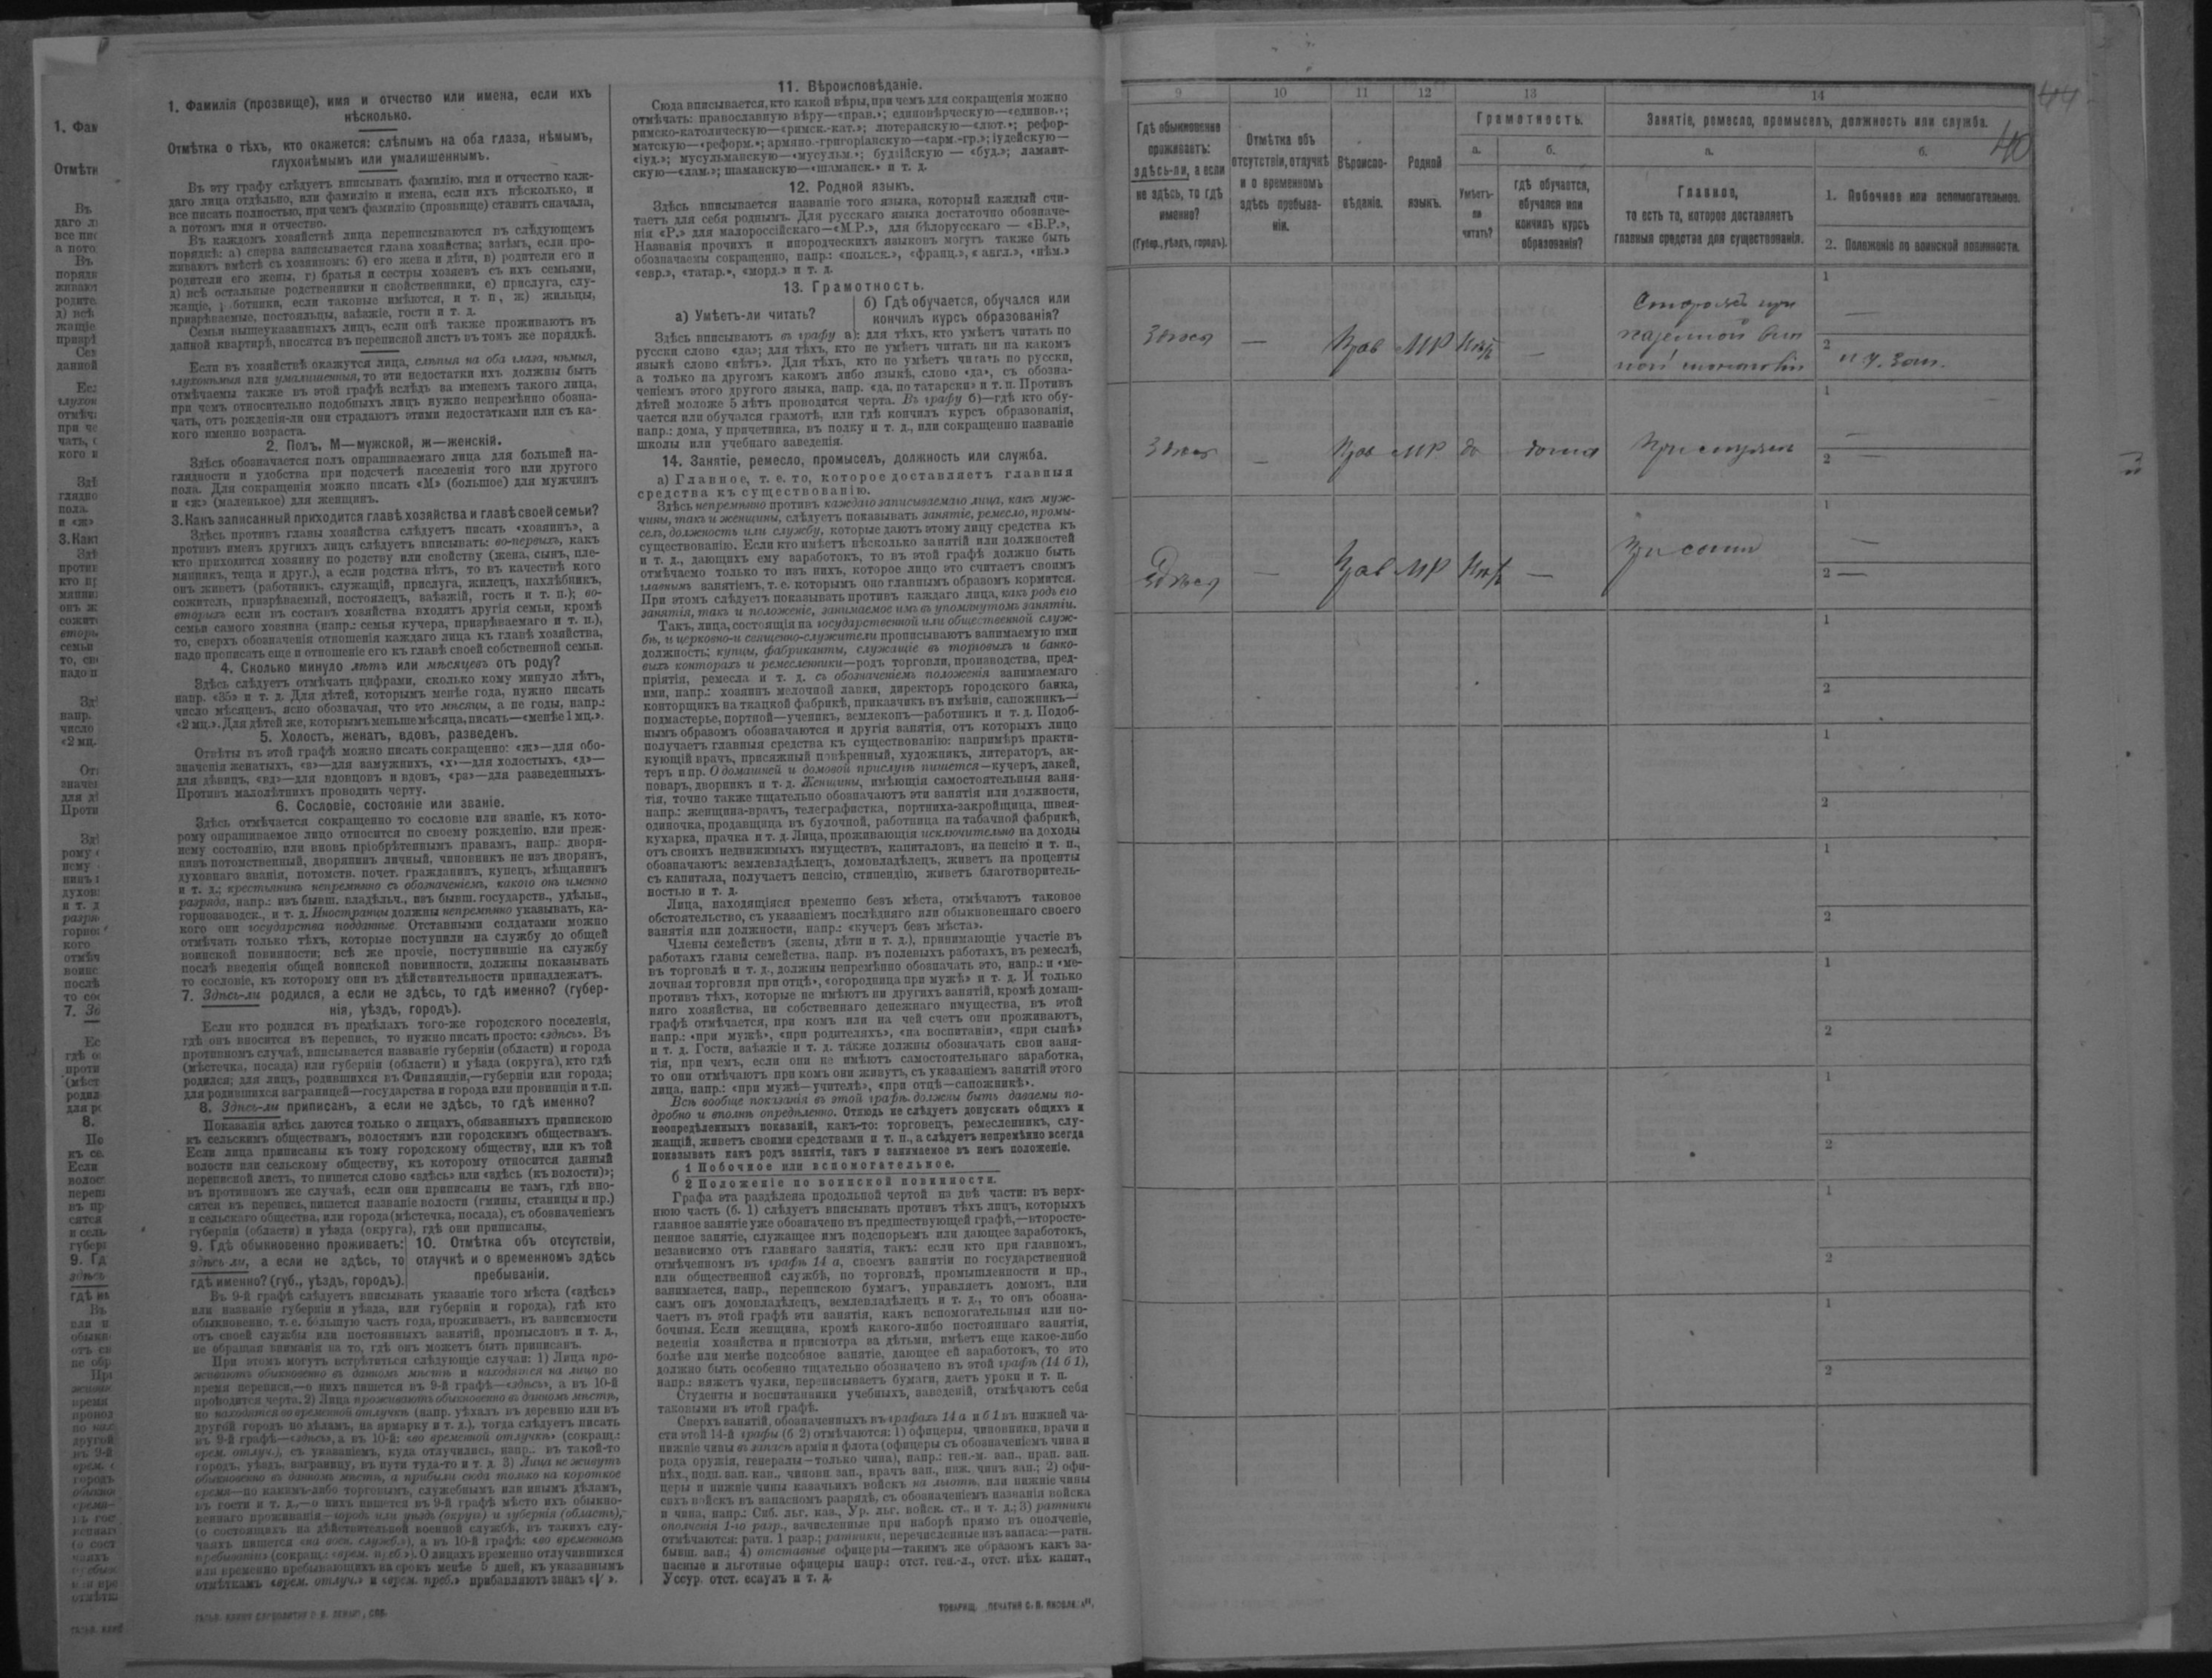 1. Фамилія (прозвище), имя и отчество или имена, если ихъ
нѣсколько.
Отмѣтка о тѣхъ, кто окажется: слѣпымъ на оба глаза, нѣмымъ,
глухонѣмымъ или умалишеннымъ.
Въ эту графу слѣдуетъ вписывать фамилію, имя и отчество каж-
даго лица отдѣльно, или фамилію и имена, если ихъ нѣсколько, и
все писать полностью, при чемъ фамилію (прозвище) ставить сначала,
а потомъ имя и отчество.
Въ каждомъ хозяйствѣ лица переписываются въ слѣдующемъ
порядкѣ: а) сперва записывается глава хозяйства; затѣмъ, если про-
живаютъ вмѣстѣ съ хозяиномъ: б) его жена и дѣти, в) родители его и
родители его жены, г) братья и сестры хозяевъ съ ихъ семьями,
д) всѣ остальные родственники и свойственники, е) прислуга, слу-
жащіе, работники, если таковые имѣются, и т. п., ж) жильцы,
призрѣваемые, постояльцы, заѣзжіе, гости и т. д.
Семьи вышеуказанныхъ лицъ, если онѣ также проживаютъ въ
данной квартирѣ, вносятся въ переписной листъ въ томъ же порядкѣ.
Если въ хозяйствѣ окажутся лица, слѣпыя на оба глаза, нѣмыя,
глухонѣмыя или умалишенныя, то эти недостатки ихъ должны быть
отмѣчаемы также въ этой графѣ вслѣдъ за именемъ такого лица,
при чемъ относительно подобныхъ лицъ нужно непремѣнно обозна-
чать, отъ рожденія-ли они страдаютъ этими недостатками или съ ка-
кого именно возраста.
2. Полъ. М—мужской, ж—женскій.
Здѣсь обозначается полъ опрашиваемаго лица для большей на-
глядности и удобства при подсчетѣ населенія того или другого
пола. Для сокращенія можно писать «М» (большое) для мужчинъ
и «ж» (маленькое) для женщинъ.
3. Какъ записанный приходится главѣ хозяйства и главѣ своей семьи?
Здѣсь противъ главы хозяйства слѣдуетъ писать «хозяинъ», а
противъ именъ другихъ лицъ слѣдуетъ вписывать: во-первыхъ, какъ
кто приходится хозяину по родству или свойству (жена, сынъ, пле-
мянникъ, теща и друг.), а если родства нѣтъ, то въ качествѣ кого
онъ живетъ (работникъ, служащій, прислуга, жилецъ, нахлѣбникъ,
сожитель, призрѣваемый, постоялецъ, заѣзжій, гость и т. п.); во-
вторыхъ если въ составъ хозяйства входятъ другія семьи, кромѣ
семьи самого хозяина (напр.: семья кучера, призрѣваемаго и т. п.),
то, сверхъ обозначенія отношенія каждаго лица къ главѣ хозяйства,
надо прописать еще и отношеніе его къ главѣ своей собственной семьи.
4. Сколько минуло лѣтъ или мѣсяцевъ отъ роду?
Здѣсь слѣдуетъ отмѣчать цифрами, сколько кому минуло лѣтъ,
напр. «35» и т. д. Для дѣтей, которымъ менѣе года, нужно писать
число мѣсяцевъ, ясно обозначая, что это мѣсяцы, а не годы, напр.:
«2 мц.». Для дѣтей же, которымъ меньше мѣсяца, писать—«менѣе 1 мц.».
5. Холостъ, женатъ, вдовъ, разведенъ.
Отвѣты въ этой графѣ можно писать сокращенно: «ж»—для обо-
значенія женатыхъ, «з»—для замужнихъ, «х»—для холостыхъ, «д»—
для дѣвицъ, «вд»—для вдовцовъ и вдовъ, «рз»—для разведенныхъ.
Противъ малолѣтнихъ проводить черту.
6. Сословіе, состояніе или званіе.
Здѣсь отмѣчается сокращенно то сословіе или званіе, къ кото-
рому опрашиваемое лицо относится по своему рожденію, или преж-
нему состоянію, или вновь пріобрѣтеннымъ правамъ, напр.: дворя-
нинъ потомственный, дворянинъ личный, чиновникъ не изъ дворянъ,
духовнаго званія, потомств. почет. гражданинъ, купецъ, мѣщанинъ
и т. д.; крестьянинъ непремѣнно съ обозначеніемъ, какого онъ именно
разряда, напр.: изъ бывш. владѣльч., изъ бывш. государств., удѣльн.,
горнозаводск., и т. д. Иностранцы должны непремѣнно указывать, ка-
кого они государства подданные. Отставными солдатами можно
отмѣчать только тѣхъ, которые поступили на службу до общей
воинской повинности; всѣ же прочіе, поступившіе на службу
послѣ введенія общей воинской повинности, должны показывать
то сословіе, къ которому они въ дѣйствительности принадлежатъ.
7. Здѣсь-ли родился, а если не здѣсь, то гдѣ именно? (губер-
нія, уѣздъ, городъ).
Если кто родился въ предѣлахъ того-же городского поселенія,
гдѣ онъ вносится въ перепись, то нужно писать просто: «здѣсь». Въ
противномъ случаѣ, вписывается названіе губерніи (области) и города
(мѣстечка, посада) или губерніи (области) и уѣзда (округа), кто гдѣ
родился; для лицъ, родившихся въ Финляндіи,—губернія или города;
для родившихся заграницей—государства и города или провинціи и т.п.
8. Здѣсь-ли приписанъ, а если не здѣсь, то гдѣ именно?
Показанія здѣсь даются только о лицахъ, обязанныхъ припискою
къ сельскимъ обществамъ, волостямъ или городскимъ обществамъ.
Если лица приписаны къ тому городскому обществу, или къ той
волости или сельскому обществу, къ которому относится данный
переписной листъ, то пишется слово «здѣсь» или «здѣсь (къ волости)»;
въ противномъ же случаѣ, если они приписаны не тамъ, гдѣ вно-
сятся въ перепись, пишется названіе волости (гмины, станицы и пр.)
и сельскаго общества, или города (мѣстечка, посада), съ обозначеніемъ
губерніи (области) и уѣзда (округа), гдѣ они приписаны.
9. Гдѣ обыкновенно проживаетъ:
здѣсь-ли, а если не здѣсь, то
гдѣ именно? (губ., уѣздъ, городъ).
10. Отмѣтка объ отсутствіи,
отлучкѣ и о временномъ здѣсь
пребываніи.
Въ 9-й графѣ слѣдуетъ вписывать указаніе того мѣста («здѣсь»
или названіе губерніи и уѣзда, или губерніи и города), гдѣ кто
обыкновенно, т. е. бо́льшую часть года, проживаетъ, въ зависимости
отъ своей службы или постоянныхъ занятій, промысловъ и т. д.,
не обращая вниманія на то, гдѣ онъ можетъ быть приписанъ.
При этомъ могутъ встрѣтиться слѣдующіе случаи: 1) Лица про-
живаютъ обыкновенно въ данномъ мѣстѣ и находятся на лицо во
время переписи,—о нихъ пишется въ 9-й графѣ—«здѣсь», а въ 10-й
проводится черта. 2) Лица проживаютъ обыкновенно въ данномъ мѣстѣ,
но находятся во временной отлучкѣ (напр. уѣхалъ въ деревню или въ
другой городъ по дѣламъ, на ярмарку и т. д.), тогда слѣдуетъ писать
въ 9-й графѣ—«здѣсь», а въ 10-й: «во временной отлучкѣ» (сокращ.:
врем. отлуч.), съ указаніемъ, куда отлучились, напр.: въ такой-то
городъ, уѣздъ, заграницу, въ пути туда-то и т. д. 3) Лица не живутъ
обыкновенно въ данномъ мѣстѣ, а прибыли сюда только на короткое
время—по какимъ-либо торговымъ, служебнымъ или инымъ дѣламъ,
въ гости и т. д.,—о нихъ пишется въ 9-й графѣ мѣсто ихъ обыкно-
веннаго проживанія—городъ или уѣздъ (округъ) и губернія (область),—
(о состоящихъ на дѣйствительной военной службѣ, въ такихъ слу-
чаяхъ пишется «на воен. службѣ»), а въ 10-й графѣ: «во временномъ
пребываніи» (сокращ.: «врем. преб.»). О лицахъ временно отлучившихся
или временно пребывающихъ на срокъ менѣе 5 дней, къ указаннымъ
отмѣткамъ «врем. отлуч.» и «врем. преб.» прибавляютъ знакъ «V».
11. Вѣроисповѣданіе.
Сюда вписывается, кто какой вѣры, при чемъ для сокращенія можно
отмѣчать: православную вѣру—«прав.»; единовѣрческую—«единов.»;
римско-католическую—«римск.-кат.»; лютеранскую—«лют.»; рефор-
матскую—«реформ.»; армяно.-григоріанскую—«арм.-гр.»; іудейскую—
«іуд.»; мусульманскую—«мусульм.»; буддійскую — «буд.»; ламаит-
скую—«лам.»; шаманскую—«шаманск.» и т. д.
12. Родной языкъ.
Здѣсь вписывается названіе того языка, который каждый счи-
таетъ для себя роднымъ. Для русскаго языка достаточно обозначе-
нія «Р.» для малороссійскаго—«М.Р.», для бѣлорусскаго — «Б.Р.»,
Названія прочихъ и инородческихъ языковъ могутъ также быть
обозначаемы сокращенно, напр.: «польск.», «франц.», « англ.», «нѣм.»
«евр.», «татар.», «морд.» и т. д.
13. Грамотность.
а) Умѣетъ-ли читать?
б) Гдѣ обучается, обучался или
кончилъ курсъ образованія?
Здѣсь вписываютъ въ графу а): для тѣхъ, кто умѣетъ читать по
русски слово «да»; для тѣхъ, кто не умѣетъ читать ни на какомъ
языкѣ слово «нѣтъ». Для тѣхъ, кто не умѣетъ читать по русски,
а только на другомъ какомъ либо языкѣ, слово «да», съ обозна-
ченіемъ этого другого языка, напр. «да, по татарски» и т. п. Противъ
дѣтей моложе 5 лѣтъ проводится черта. Въ графу б)—гдѣ кто обу-
чается или обучался грамотѣ, или гдѣ кончилъ курсъ образованія,
напр.: дома, у причетника, въ полку и т. д., или сокращенно названіе
школы или учебнаго заведенія.
14. Занятіе, ремесло, промыселъ, должность или служба.
а) Главное, т. е. то, которое доставляетъ главныя
средства къ существованію.
Здѣсь непремѣнно противъ каждаго записываемаго лица, какъ муж-
чины, такъ и женщины, слѣдуетъ показывать занятіе, ремесло, промы-
селъ, должность или службу, которые даютъ этому лицу средства къ
существованію. Если кто имѣетъ нѣсколько занятій или должностей
и т. д., дающихъ ему заработокъ, то въ этой графѣ должно быть
отмѣчаемо только то изъ нихъ, которое лицо это считаетъ своимъ
главнымъ занятіемъ, т. е. которымъ оно главнымъ образомъ кормится.
При этомъ слѣдуетъ показывать противъ каждаго лица, какъ родъ его
занятія, такъ и положеніе, занимаемое имъ въ упомянутомъ занятіи.
Такъ, лица, состоящія на государственной или общественной служ-
бѣ, и церковно-и священно-служители прописываютъ занимаемую ими
должность; купцы, фабриканты, служащіе въ торговыхъ и банко-
выхъ конторахъ и ремесленники—родъ торговли, производства, пред-
пріятія, ремесла и т. д. съ обозначеніемъ положенія занимаемаго
ими, напр.: хозяинъ мелочной лавки, директоръ городского банка,
конторщикъ на ткацкой фабрикѣ, приказчикъ въ имѣніи, сапожникъ—
подмастерье, портной—ученикъ, землекопъ—работникъ и т. д. Подоб-
нымъ образомъ обозначаются и другія занятія, отъ которыхъ лицо
получаетъ главныя средства къ существованію: напримѣръ практи-
кующій врачъ, присяжный повѣренный, художникъ, литераторъ, ак-
теръ и пр. О домашней и домовой прислугѣ пишется—кучеръ, лакей,
поваръ, дворникъ и т. д. Женщины, имѣющія самостоятельныя заня-
тія, точно также тщательно обозначаютъ эти занятія или должности,
напр.: женщина-врачъ, телеграфистка, портниха-закройщица, швея-
одиночка, продавщица въ булочной, работница на табачной фабрикѣ,
кухарка, прачка и т. д. Лица, проживающія исключительно на доходы
отъ своихъ недвижимыхъ имуществъ, капиталовъ, на пенсію и т. п.,
обозначаютъ: землевладѣлецъ, домовладѣлецъ, живетъ на проценты
съ капитала, получаетъ пенсію, стипендію, живетъ благотворитель-
ностью и т. д.
Лица, находящіяся временно безъ мѣста, отмѣчаютъ таковое
обстоятельство, съ указаніемъ послѣдняго или обыкновеннаго своего
занятія или должности, напр.: «кучеръ безъ мѣста».
Члены семействъ (жены, дѣти и т. д.), принимающіе участіе въ
работахъ главы семейства, напр. въ полевыхъ работахъ, въ ремеслѣ,
въ торговлѣ и т. д., должны непремѣнно обозначать это, напр.: и «ме-
лочная торговля при отцѣ», «огородница при мужѣ» и т. д. И только
противъ тѣхъ, которые не имѣютъ ни другихъ занятій, кромѣ домаш-
няго хозяйства, ни собственнаго денежнаго имущества, въ этой
графѣ отмѣчается, при комъ или на чей счетъ они проживаютъ,
напр.: «при мужѣ», «при родителяхъ», «на воспитаніи», «при сынѣ»
и т. д. Гости, заѣзжіе и т. д. также должны обозначать свои заня-
тія, при чемъ, если они не имѣютъ самостоятельнаго заработка,
то они отмѣчаютъ при комъ они живутъ, съ указаніемъ занятій этого
лица, напр.: «при мужѣ—учителѣ», «при отцѣ—сапожникѣ».
Всѣ вообще показанія въ этой графѣ должны быть даваемы по-
дробно и вполнѣ опредѣленно. Отнюдь не слѣдуетъ допускать общихъ и
неопредѣленныхъ показаній, какъ-то: торговецъ, ремесленникъ, слу-
жащій, живетъ своими средствами и т. п., а слѣдуетъ непремѣнно всегда
показывать какъ родъ занятія, такъ и занимаемое въ немъ положеніе.
б 1 Побочное или вспомогательное.
2 Положеніе по воинской повинности.
Графа эта раздѣлена продольной чертой на двѣ части: въ верх-
нюю часть (б. 1) слѣдуетъ вписывать противъ тѣхъ лицъ, которыхъ
главное занятіе уже обозначено въ предшествующей графѣ,—второсте-
пенное занятіе, служащее имъ подспорьемъ или дающее заработокъ,
независимо отъ главнаго занятія, такъ: если кто при главномъ,
отмѣченномъ въ графѣ 14 а, своемъ занятіи по государственной
или общественной службѣ, по торговлѣ, промышленности и пр.,
занимается, напр., перепискою бумагъ, управляетъ домомъ, или
самъ онъ домовладѣлецъ, землевладѣлецъ и т. д., то онъ обозна-
чаетъ въ этой графѣ эти занятія, какъ вспомогательныя или по-
бочныя. Если женщина, кромѣ какого-либо постояннаго занятія,
веденія хозяйства и присмотра за дѣтьми, имѣетъ еще какое-либо
болѣе или менѣе подсобное занятіе, дающее ей заработокъ, то это
должно быть особенно тщательно обозначено въ этой графѣ (14 б 1),
напр.: вяжетъ чулки, переписываетъ бумаги, даетъ уроки и т. п.
Студенты и воспитанники учебныхъ, заведеній, отмѣчаютъ себя
таковыми въ этой графѣ.
Сверхъ занятій, обозначенныхъ въ графахъ 14 а и б 1 въ нижней ча-
сти этой 14-й графы (б 2) отмѣчаются: 1) офицеры, чиновники, врачи и
нижніе чины въ запасѣ арміи и флота (офицеры съ обозначеніемъ чина и
рода оружія, генералы—только чина), напр.: ген.-м. зап., прап. зап.
пѣх., подп. зап. кав., чиновн. зап., врачъ зап., ниж. чинъ зап.; 2) офи-
церы и нижніе чины казачьихъ войскъ на льготѣ, или нижніе чины
сихъ войскъ въ запасномъ разрядѣ, съ обозначеніемъ названія войска
и чина, напр.: Сиб. льг. каз., Ур. льг. войск. ст., и т. д.; 3) ратники
ополченія 1-го разр., зачисленные при наборѣ прямо въ ополченіе,
отмѣчаются: ратн. 1 разр.; ратники, перечисленные изъ запаса:—ратн.
бывш. зап.; 4) отставные офицеры—такимъ же образомъ какъ за-
пасные и льготные офицеры напр.: отст. ген.-л., отст. пѣх. капит.,
Уссур. отст. есаулъ и т. д.
44
40
9
10
11
12
13
14
Гдѣ обыкновенно
проживаетъ:
здѣсь-ли, а если
не здѣсь, то гдѣ
именно?
(Губер., уѣздъ, городъ).
Отмѣтка объ
отсутствіи, отлучкѣ
и о временномъ
здѣсь пребыва-
ніи.
Вѣроиспо-
вѣданіе.
Родной
языкъ.
Грамотность.
а.
Умѣетъ-
ли
читать?
б.
гдѣ обучается,
обучался или
кончилъ курсъ
образованія?
Занятіе, ремесло, промыселъ, должность или служба.
а.
Главное,
то есть то, которое доставляетъ
главныя средства для существованія.
б.
1. Побочное или вспомогательное.
2. Положеніе по воинской повинности.
Здѣсь — Прав МР Нѣт —
Сторожъ при
казенной вин
ной
1 —
2 н ч. зап.
Здѣсь — Прав МР да дома
1 —
2 —
Здѣсь — Прав МР Нѣт —
1 —
2 —
1
2
1
2
1
2
1
2
1
2
1
2
1
2